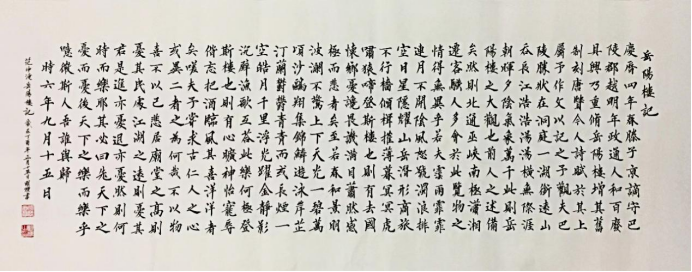 岳陽樓記
慶曆四年春滕子京謫守巴
陵郡越明年政通人和百廢
具興乃重修岳陽樓增其舊
制刻唐賢今人詩賦於其上
屬予作文以記之予觀夫巴
陵勝狀在洞庭一湖銜遠山
吞長江浩浩湯湯橫無際涯
朝暉夕陰氣象萬千此則岳
陽樓之大觀也前人之述備
矣然則北通巫峽南極瀟湘
遷客騷人多會於此覽物之
情得無異乎若夫霪雨霏霏
連月不開陰風怒號濁浪排
空日星隱耀山岳潛形商旅
不行檣傾楫摧薄暮冥冥虎
嘯猿啼登斯樓也則有去國
懷鄉憂讒畏譏滿目蕭然感
極而悲者矣至若春和景明
波瀾不驚上下天光一碧萬
頃沙鷗翔集錦鱗遊泳岸芷
汀蘭鬱鬱青青而或長煙一
空皓月千里浮光躍金靜影
沉璧漁歌互答此樂何極登
斯樓也則有心曠神怡寵辱
偕忘把酒臨風其喜洋洋者
矣嗟夫予嘗求古仁人之心
或異二者之為何哉不以物
喜不以己悲居廟堂之高則
憂其民處江湖之遠則憂其
君是進亦憂退亦憂然則何
時而樂耶其必曰先天下之
憂而憂後天下之樂而樂乎
噫微斯人吾誰與歸
時六年九月十五日
范仲淹岳陽樓記